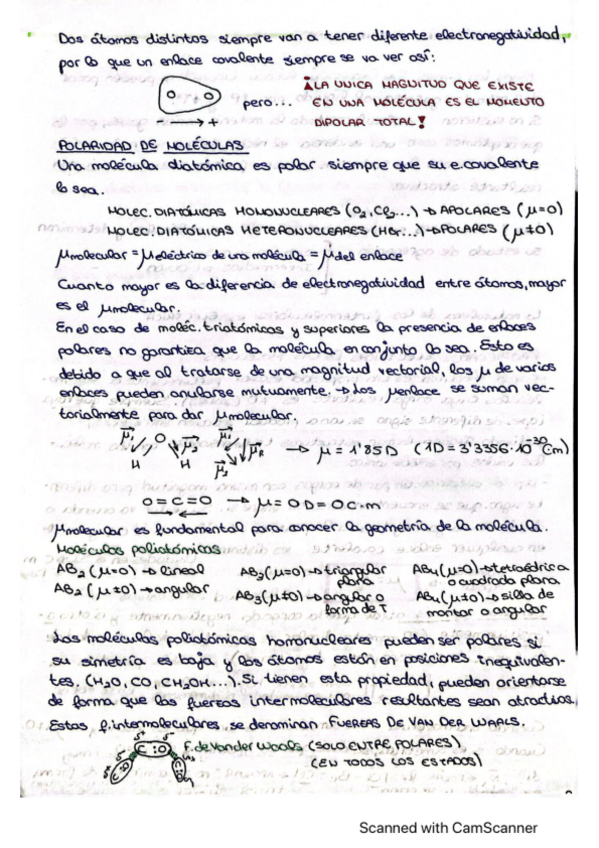 Dos átomos distintos siempre van a tener diferente electronegatividad,
por lo que un enlace covalente siempre se va ver así:
¡LA UNICA MAGNITUD QUE EXISTE
pero... EN UNA MOLÉCULA ES EL MOMENTO
- → + DIPOLAR TOTAL!
POLARIDAD DE MOLÉCULAS
Una molécula diatómica es polar siempre que su e.covalente
lo sea.
MOLEC.DIATÓMICAS HOMONUCLEARES (O₂, Cl₂...) → APOLARES (μ=0)
MOLEC.DIATÓMICAS HETERONUCLEARES → POLARES (μ≠0)
μmolecular = μeléctrico de una molécula = μdel enlace
Cuanto mayor es la diferencia de electronegatividad entre átomos, mayor
es el μmolecular.
En el caso de moléc. triatómicas y superiores la presencia de enlaces
polares no garantiza que la molécula en conjunto lo sea. Esto es
debido a que al tratarse de una magnitud vectorial, los μ de varios
enlaces pueden anularse mutuamente. → Los μenlace se suman vec-
torialmente para dar μmolecular.
μ₁ O μ₂ μ₁ μR → μ = 1'85D (1D = 3'3356·10⁻³⁰ Cm)
H H μ₂
O = C = O → μ = 0D = 0C·m
μmolecular es fundamental para conocer la geometría de la molécula.
Moléculas poliatómicas
AB₂ (μ=0) → lineal AB₃ (μ=0) → triangular AB₄ (μ=0) → tetraédrica
plana o cuadrado plana
AB₂ (μ≠0) → angular AB₃ (μ≠0) → angular o AB₄ (μ≠0) → silla de
forma de T montar o angular
Las moléculas poliatómicas homonucleares pueden ser polares si
su simetría es baja y los átomos están en posiciones inequivalen-
tes. (H₂O, CO, CH₃OH...). Si tienen esta propiedad, pueden orientarse
de forma que las fuerzas intermoleculares resultantes sean atractivas.
Estas f.intermoleculares se denominan FUERZAS DE VAN DER WAALS.
δ+ δ- F. de Van der Waals (SOLO ENTRE POLARES)
(EN TODOS LOS ESTADOS)
Scanned with CamScanner